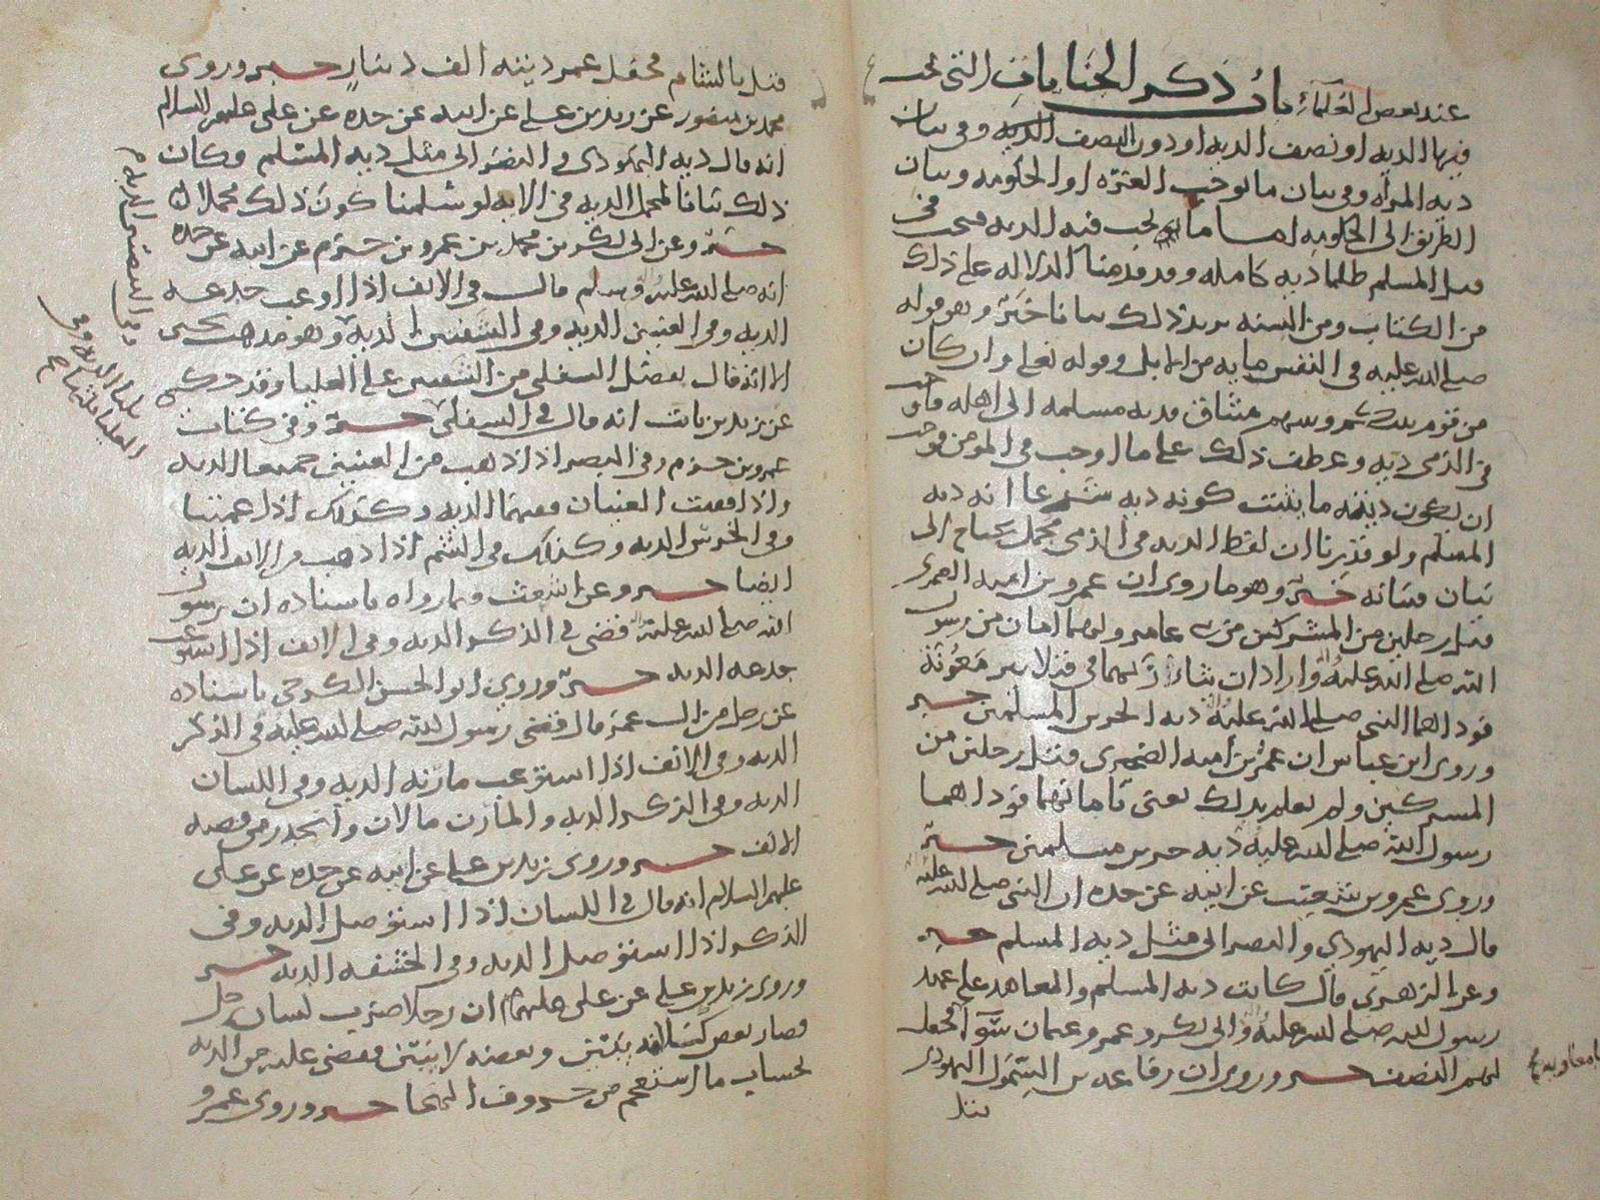 باب ذكر الجنايات التي تجب
عند بعض العلماء
فيها الديه او نصف الديه او دون النصف الديه وفي بيان
ديه المراه وفي بيان ما توجب الغره او الحكومه وبيان
الطريق الى الحكومه اما ما تجب فيه الديه فتجب في
قتل المسلم ظلما ديه كامله وقد قدمنا الدلاله على ذلك
من الكتاب ومن السنه يزيد ذلك بيانا خبر وهو قوله
صلى الله عليه في النفس مايه من الابل وقوله تعلى وان كان
من قوم بينكم وبينهم ميثاق فديه مسلمه الى اهله فاوجب
في الذمي ديه وعطف ذلك على ما اوجب في المومن فوجب
ان يكون ديته ما يثبت كونه ديه شرعا انه ديه
المسلم ولو قدرنا ان لفظ الديه في الذمي مجمل يحتاج الى
بيان فبيانه خبر وهو ما روي ان عمرو بن اميه الضمري
قتل رجلين من المشركين من بني عامر ولهما امان من رسول
الله صلى الله عليه واراد ان يثار بهما في قتلا بير معونة
فوداهما النبي صلى الله عليه ديه الحرين المسلمين خبر
وروى ابن عباس ان عمرو بن أميه الضمري قتل رجلين من
المشركين ولم يعلم بذلك يعني بامانهما فوداهما
رسول الله صلى الله عليه ديه حرين مسلمين خبر
وروى عمرو بن شعيب عن ابيه عن جده ان النبي صلى الله عليه
قال ديه اليهودي والنصراني مثل ديه المسلم خبر
وعن الزهري قال كانت ديه المسلم والمعاهد على عهد
رسول الله صلى الله عليه وابي بكر وعمر وعثمان سوآ فجعل
لهم النصف خبر وروي ان رفاعه بن السموال اليهودي
معاويه
قتل
قتل بالشام فجعل عمر ديته الف دينار خبر وروى
محمد بن منصور عن زيد بن علي عن ابيه عن جده عن علي عليهم السلام
انه قال ديه اليهودي والنصراني مثل ديه المسلم وكان
ذلك بيانا لمجمل الديه في الايه لو سلمنا كون ذلك مجملا
خبر وعن ابي بكر بن محمد بن عمرو بن حزم عن ابيه عن جده
انه صلى الله عليه وسلم قال في الانف اذا اوعب جدعه
الديه وفي العينين الديه وفي الشفتين الديه وهو مذهب يحيى
الا انه قال بفضل السفلى من الشفتين على العليا وقد ذكر
عن زيد بن ثابت انه قال في السفلى خبر وفي كتاب
عمرو بن حزم وفي البصر اذا ذهب من العينين جميعا الديه
واذا فقئت العينان ففيهما الديه وكذلك اذا عميتا
وفي الخرس الديه وكذلك في الشم اذا ذهب من الانف الديه
ايضا خبر وعن اشعث فيما رواه باسناده ان رسول
الله صلى الله عليه قضى في الذكر الديه وفي الانف اذا استوعب
جدعه الديه خبر وروى ابو الحسن الكرخي باسناده
عن رجل من ال عمر قال قضى رسول الله صلى الله عليه في الذكر
الديه وفي الانف اذا استوعب مارنه الديه وفي اللسان
الديه وفي الذكر الديه والمارن ما لان وانحدر من قصبه
الانف خبر وروى زيد بن علي عن ابيه عن جده عن علي
عليهم السلام انه قال في اللسان اذا استوصل الديه وفي
الذكر اذا استوصل الديه وفي الحشفه الديه خبر
وروى زيد بن علي عن علي عليهم السلام ان رجلا ضرب لسان رجل
فصار بعض كلامه يتبين وبعضه لا يتبين فقضى عليه من الديه
بحساب ما استعجم من حروف الهجا خبر وروى عمرو